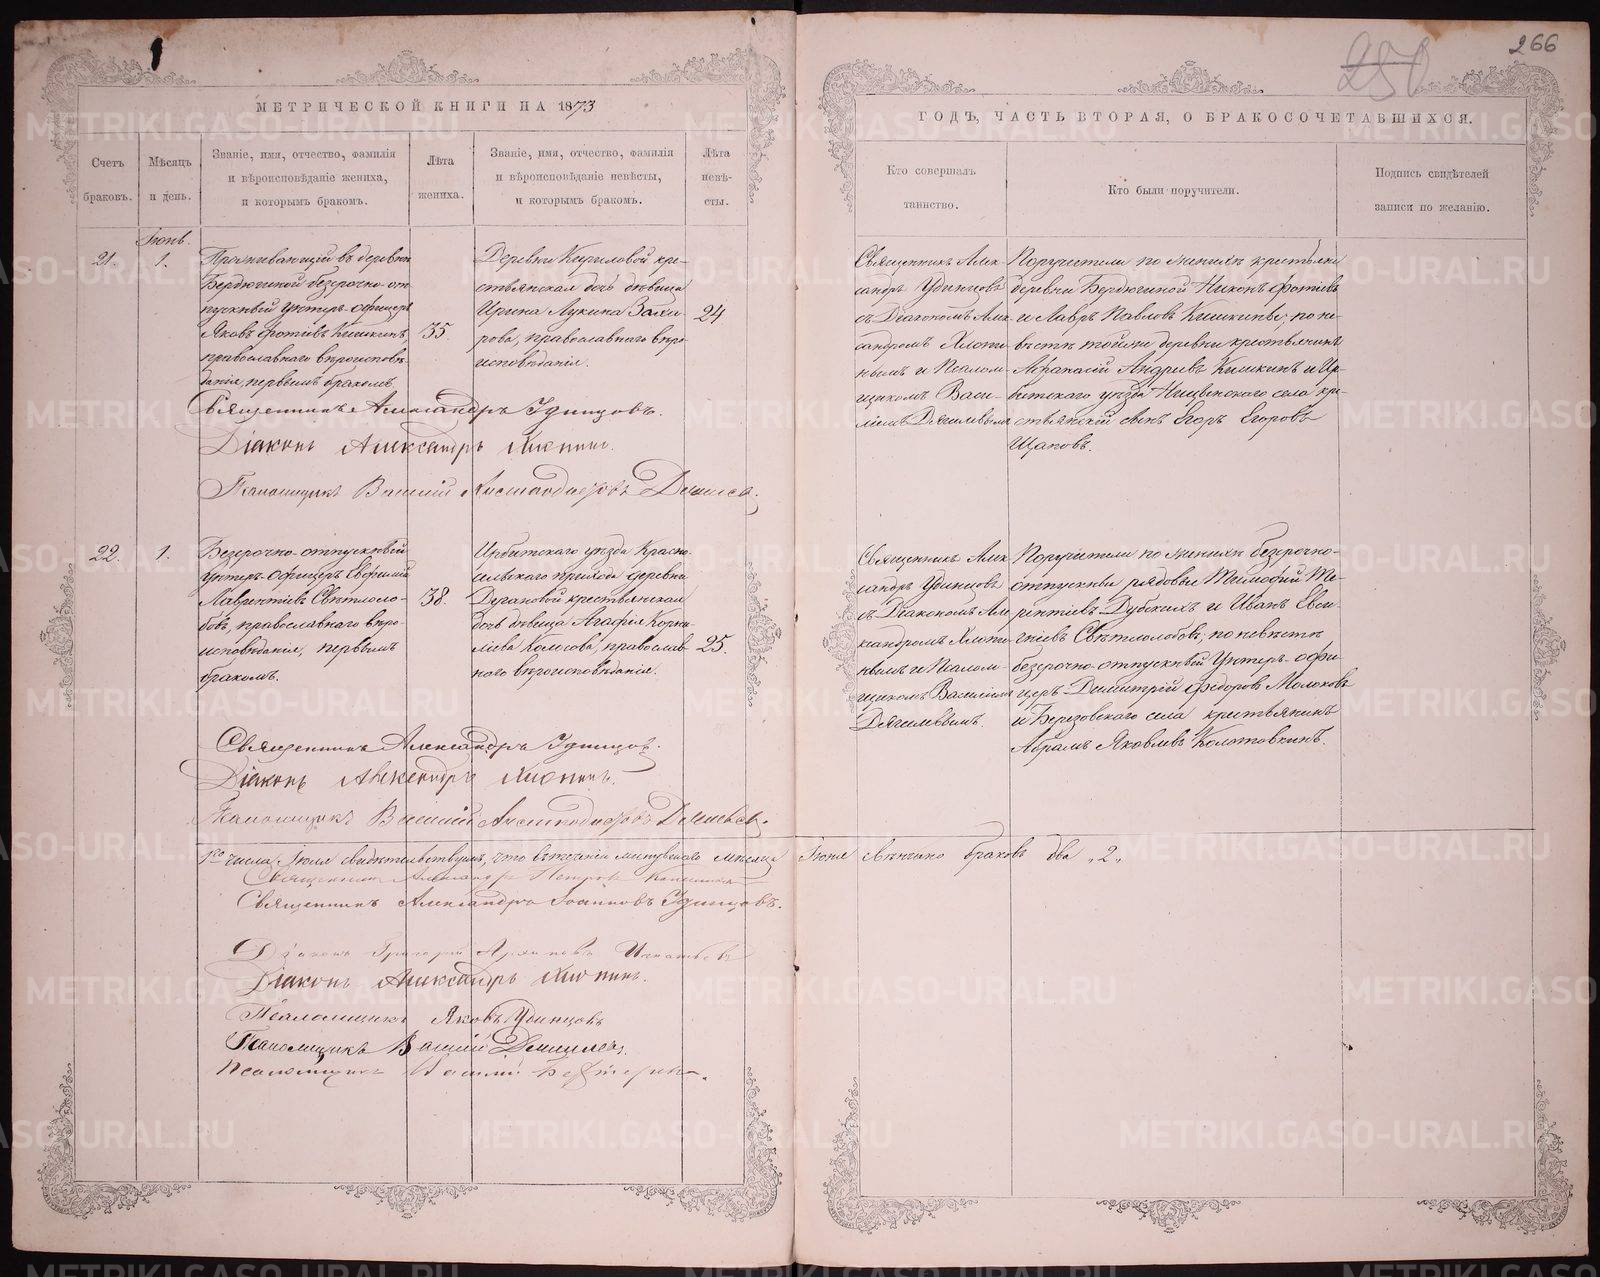 266
250
МЕТРИЧЕСКОЙ КНИГИ НА 1873
ГОДЪ, ЧАСТЬ ВТОРАЯ, О БРАКОСОЧЕТАВШИХСЯ.
Счетъ браковъ.
Мѣсяцъ и день.
Званіе, имя, отчество, фамилія
и вѣроисповѣданіе жениха,
и которымъ бракомъ.
Лѣта жениха.
Званіе, имя, отчество, фамилія
и вѣроисповѣданіе невѣсты,
и которымъ бракомъ.
Лѣта невѣ-
сты.
Кто совершалъ
таинство.
Кто были поручители.
Подпись свидѣтелей
записи по желанію.
Іюнь.
21.
1.
Проживающій въ деревнѣ
Бердюгиной безсрочно-от
пускный унтеръ-офицеръ
Яковъ Фотіевъ Кишкинъ,
православнаго вѣроисповѣ-
данія, первымъ бракомъ.
35.
Деревни Кириловой кре-
стьянская дочь дѣвица
Ирина Лукина Заха
рова, православнаго вѣро
исповѣданія.
24
Священникъ Алек
сандръ Удинцовъ
съ Діакономъ Алек
сандромъ Хлопи-
нымъ и Псалом-
щикомъ Васи-
ліемъ
Поручители по женихѣ крестьяне
деревни Бердюгиной Никонъ Фотіевъ
и Лавръ Павловъ Кишкины; по не-
вѣстѣ той же деревни крестьянинъ
Афанасій Андреевъ Кишкинъ и Ир-
битскаго уѣзда Ницинскаго села кре-
стьянскій сынъ Егоръ Егоровъ
Щаповъ.
Священникъ Александръ Удинцовъ.
Діаконъ Александръ Хлопинъ.
Псаломщикъ Василій
22.
1.
Безсрочно-отпускный
унтеръ-офицеръ Евфимій
Лаврентіевъ Свѣтлоло-
бовъ, православнаго вѣро-
исповѣданія, первымъ
бракомъ.
38.
Ирбитскаго уѣзда Красно-
сельскаго прихода деревни
крестьянская
дочь дѣвица Агафія Корни-
ліева православ
наго вѣроисповѣданія.
25.
Священникъ Алек
сандръ Удинцовъ
съ Діакономъ Але
ксандромъ Хлопи
нымъ и Псалом-
щикомъ Василіемъ
Поручители по женихѣ безсрочно-
отпускные рядовые Тимофей Те-
рентіевъ Дубскихъ и Иванъ Евси-
гніевъ Свѣтлолобовъ, по невѣстѣ
безсрочно-отпускный Унтеръ-офи-
церъ Димитрій Федоровъ Молоковъ
и Березовскаго села крестьянинъ
Абрамъ Яковлевъ Колотовкинъ.
Священникъ Александръ Удинцовъ.
Діаконъ Александръ Хлопинъ.
Псаломщикъ Василій
1го числа Іюля свидѣтельствуемъ, что въ теченіи минувшаго мѣсяца Іюня вѣнчано браковъ два „2„
Священникъ Александръ Петровъ
Священникъ Александръ Іоанновъ Удинцовъ.
Діаконъ Григорій Игнатьевъ
Діаконъ Александръ Хлопинъ.
Псаломщикъ Яковъ Удинцовъ
Псаломщикъ Василій
Псаломщикъ Василій
METRIKI.GASO-URAL.RU